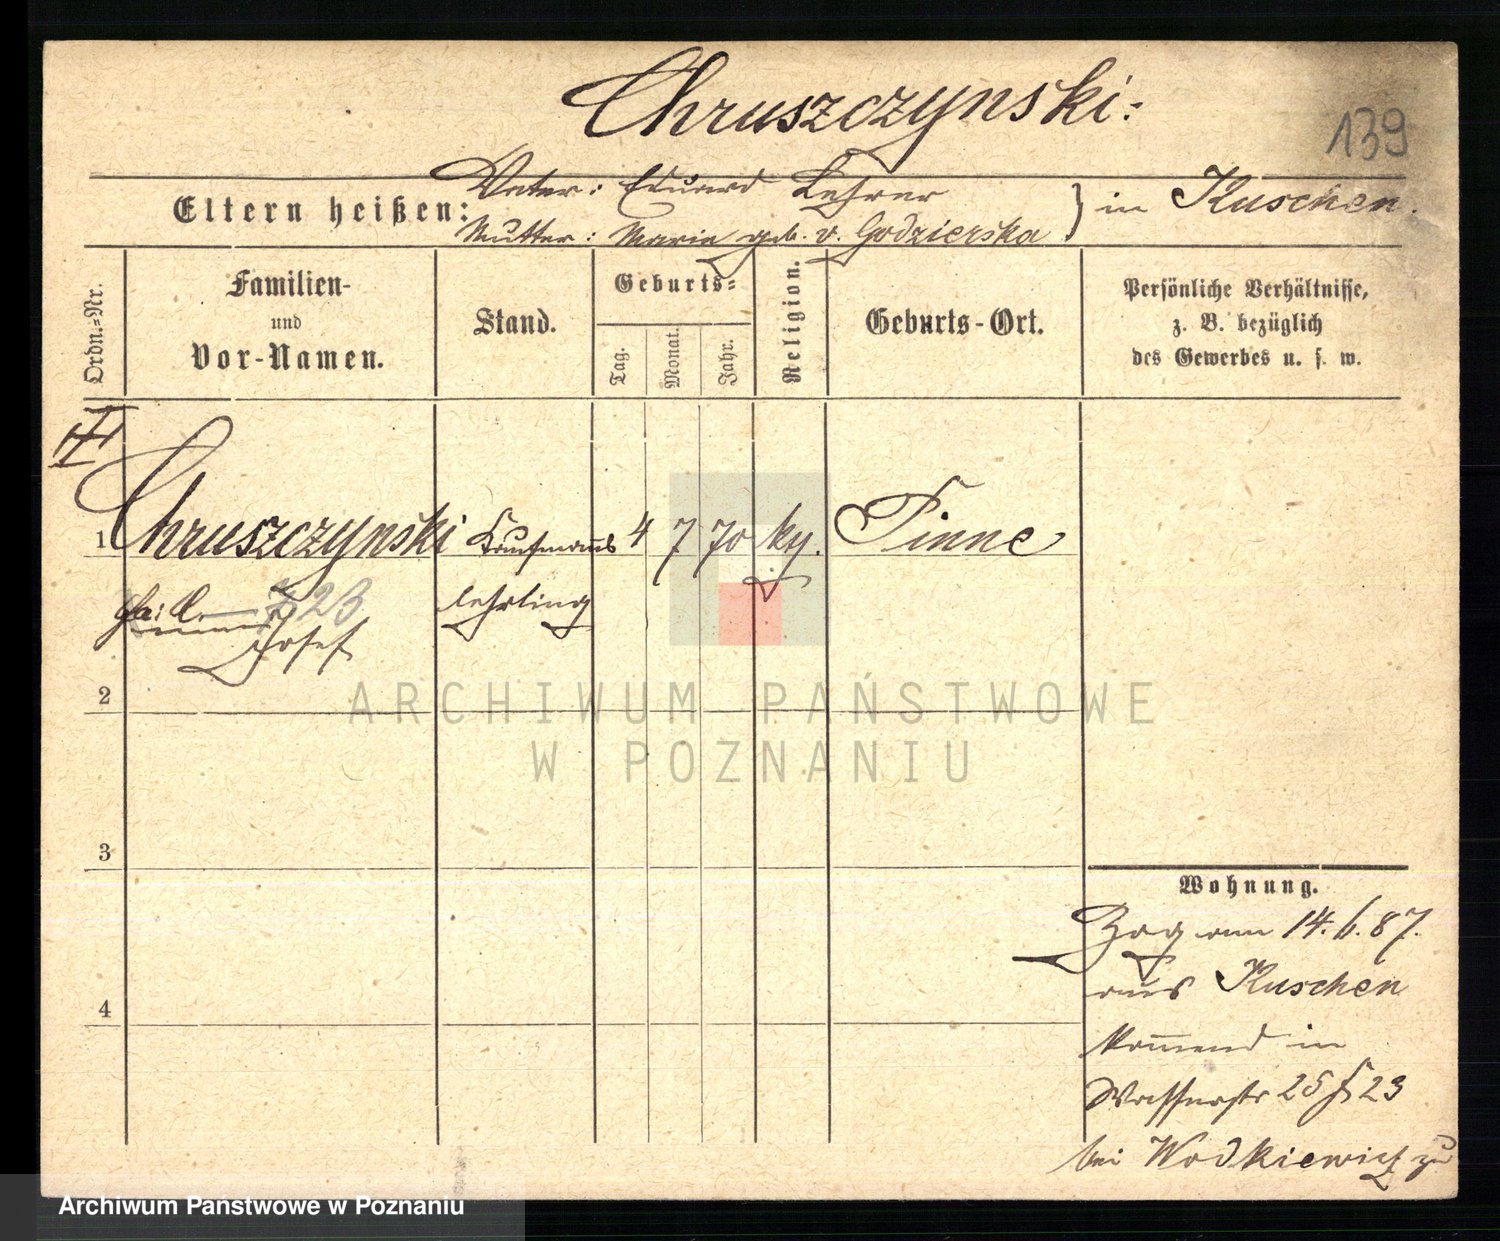 Chruszczynski:
139
Eltern heißen:
Vater: Eduard Lehrer
Mutter: Maria geb. v. Godzierska
} in Kuschen.
Ordn.=Nr.
Familien-
und
Vor-Namen.
Stand.
Geburts=
Tag.
Monat.
Jahr.
Religion.
Geburts-Ort.
Persönliche Verhältnisse,
z. B. bezüglich
des Gewerbes u. s. w.
1 Chruszczynski Kaufmanns 4 7 70 ky. Pinne
lehrling
Josef
2
3
4
Wohnung.
Zog am 14. 6. 87.
aus Kuschen
kommend in
Wasserstr 25 23
bei Wodkiewicz zu
ARCHIWUM PAŃSTWOWE
W POZNANIU
Archiwum Państwowe w Poznaniu